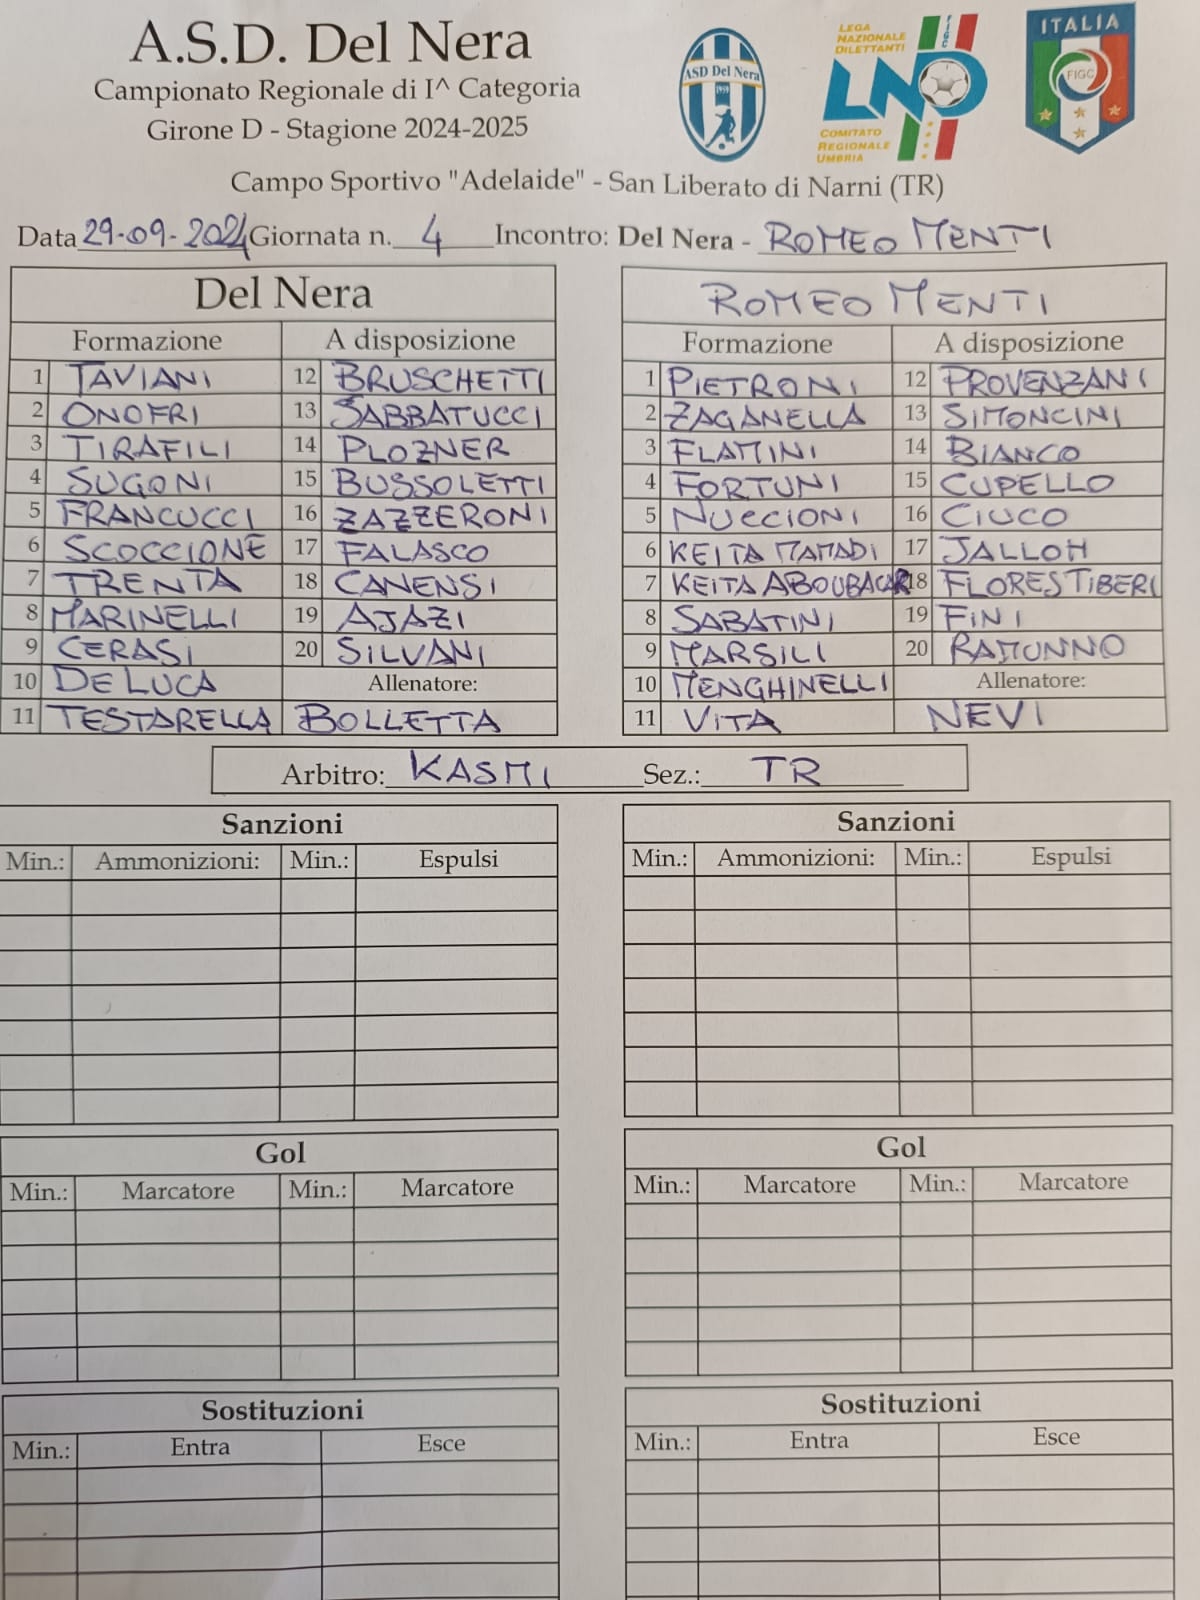 A.S.D. Del Nera
Campionato Regionale di I^ Categoria
Girone D - Stagione 2024-2025
ASD Del Nera
1959
LEGA
NAZIONALE
DILETTANTI
FIGC
LND
COMITATO
REGIONALE
UMBRIA
ITALIA
FIGC
Campo Sportivo "Adelaide" - San Liberato di Narni (TR)
Data 29-09-2024 Giornata n. 4 Incontro: Del Nera - ROMEO MENTI
Del Nera
Formazione A disposizione
1 TAVIANI 12 BRUSCHETTI
2 ONOFRI 13 SABBATUCCI
3 TIRAFILI 14 PLOZNER
4 SUGONI 15 BUSSOLETTI
5 FRANCUCCI 16 ZAZZERONI
6 SCOCCIONE 17 FALASCO
7 TRENTA 18 CANENSI
8 MARINELLI 19 AJAZI
9 CERASI 20 SILVANI
10 DE LUCA Allenatore:
11 TESTARELLA BOLLETTA
ROMEO MENTI
Formazione A disposizione
1 PIETRONI 12 PROVENZANI
2 ZAGANELLA 13 SIMONCINI
3 FLAMINI 14 BIANCO
4 FORTUNI 15 CUPELLO
5 NUCCIONI 16 CIUCO
6 KEITA MAMADI 17 JALLOH
7 KEITA ABOUBACAR 18 FLORES TIBERI
8 SABATINI 19 FINI
9 MARSILI 20 RAMUNNO
10 MENGHINELLI Allenatore:
11 VITA NEVI
Arbitro: KASMI Sez.: TR
Sanzioni
Min.: Ammonizioni: Min.: Espulsi
Sanzioni
Min.: Ammonizioni: Min.: Espulsi
Gol
Min.: Marcatore Min.: Marcatore
Gol
Min.: Marcatore Min.: Marcatore
Sostituzioni
Min.: Entra Esce
Sostituzioni
Min.: Entra Esce